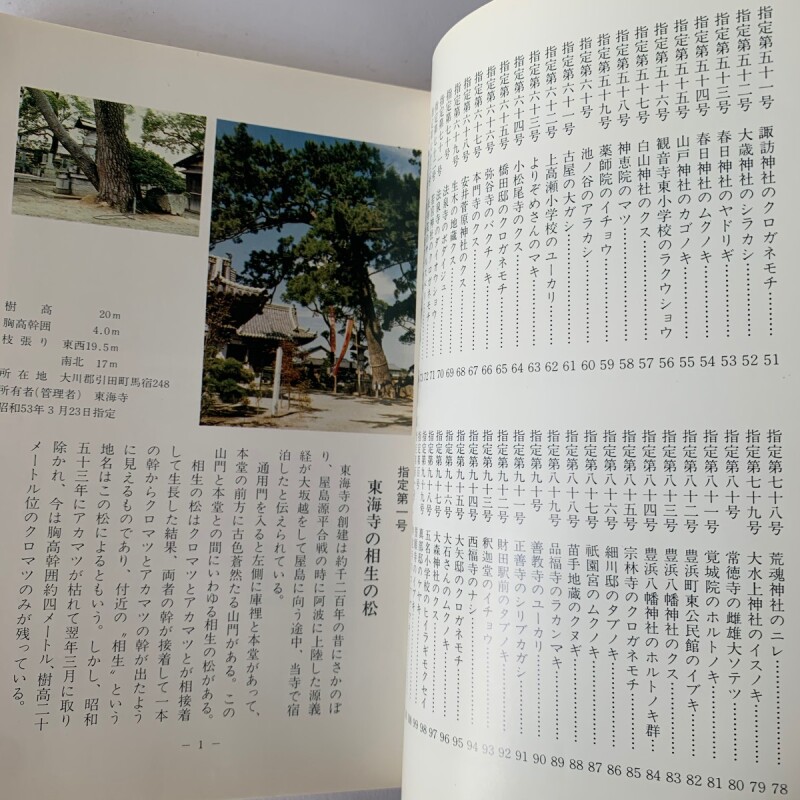 指定第五十一号 諏訪神社のクロガネモチ…… 51
指定第五十二号 大蔵神社のシラカシ…… 52
指定第五十三号 春日神社のヤドリギ…… 53
指定第五十四号 春日神社のムクノキ…… 54
指定第五十五号 山戸神社のカゴノキ…… 55
指定第五十六号 観音寺東小学校のラクウショウ 56
指定第五十七号 白山神社のクス…… 57
指定第五十八号 神恵院のマツ…… 58
指定第五十九号 薬師院のイチョウ…… 59
指定第六十号 池ノ谷のアラカシ…… 60
指定第六十一号 古屋の大ガシ…… 61
指定第六十二号 上高瀬小学校のユーカリ…… 62
指定第六十三号 よりぞめさんのマキ…… 63
指定第六十四号 小松尾寺のクス…… 64
指定第六十五号 橋田邸のクロガネモチ…… 65
指定第六十六号 弥谷寺のバクチノキ…… 66
指定第六十七号 本門寺のクス…… 67
指定第六十八号 安井菅原神社のクス…… 68
指定第六十九号 生木の地蔵クス…… 69
法泉寺のボダイジュ…… 70
71
72
指定第七十八号 荒魂神社のニレ…… 78
指定第七十九号 大水上神社のイスノキ…… 79
指定第八十号 常徳寺の雌雄大ソテツ…… 80
指定第八十一号 覚城院のホルトノキ…… 81
指定第八十二号 豊浜町東公民館のイブキ…… 82
指定第八十三号 豊浜八幡神社のクス…… 83
指定第八十四号 豊浜八幡神社のホルトノキ群… 84
指定第八十五号 宗林寺のクロガネモチ…… 85
指定第八十六号 細川邸のタブノキ…… 86
指定第八十七号 祇園宮のムクノキ…… 87
指定第八十八号 苗手地蔵のクヌギ…… 88
指定第八十九号 品福寺のラカンマキ…… 89
指定第九十号 善教寺のユーカリ…… 90
指定第九十一号 正善寺のシリブカガシ…… 91
指定第九十二号 財田駅前のタブノキ…… 92
指定第九十三号 釈迦堂のイチョウ…… 93
指定第九十四号 西福寺のナシ…… 94
指定第九十五号 大矢邸のクロガネモチ…… 95
指定第九十六号 大石さんのムクノキ…… 96
指定第九十七号 大森神社のムクノキ…… 97
指定第九十八号 五名小学校のヒイラギモクセイ 98
99
樹高 20m
胸高幹囲 4.0m
枝張り 東西19.5m
南北 17m
所在地 大川郡引田町馬宿248
所有者(管理者) 東海寺
昭和53年3月23日指定
指定第一号
東海寺の相生の松
東海寺の創建は約千二百年の昔にさかのぼ
り、屋島源平合戦の時に阿波に上陸した源義
経が大坂越をして屋島に向う途中、当寺で宿
泊したと伝えられている。
通用門を入ると左側に庫裡と本堂があって、
本堂の前方に古色蒼然たる山門がある。この
山門と本堂との間にいわゆる相生の松がある。
相生の松はクロマツとアカマツとが相接着
して生長した結果、両者の幹が接着して一本
の幹からクロマツとアカマツの幹が出たよう
に見えるものであり、付近の〝相生〟という
地名はこの松によるともいう。しかし、昭和
五十三年にアカマツが枯れて翌年三月に取り
除かれ、今は胸高幹囲約四メートル、樹高二十
メートル位のクロマツのみが残っている。
— 1 —